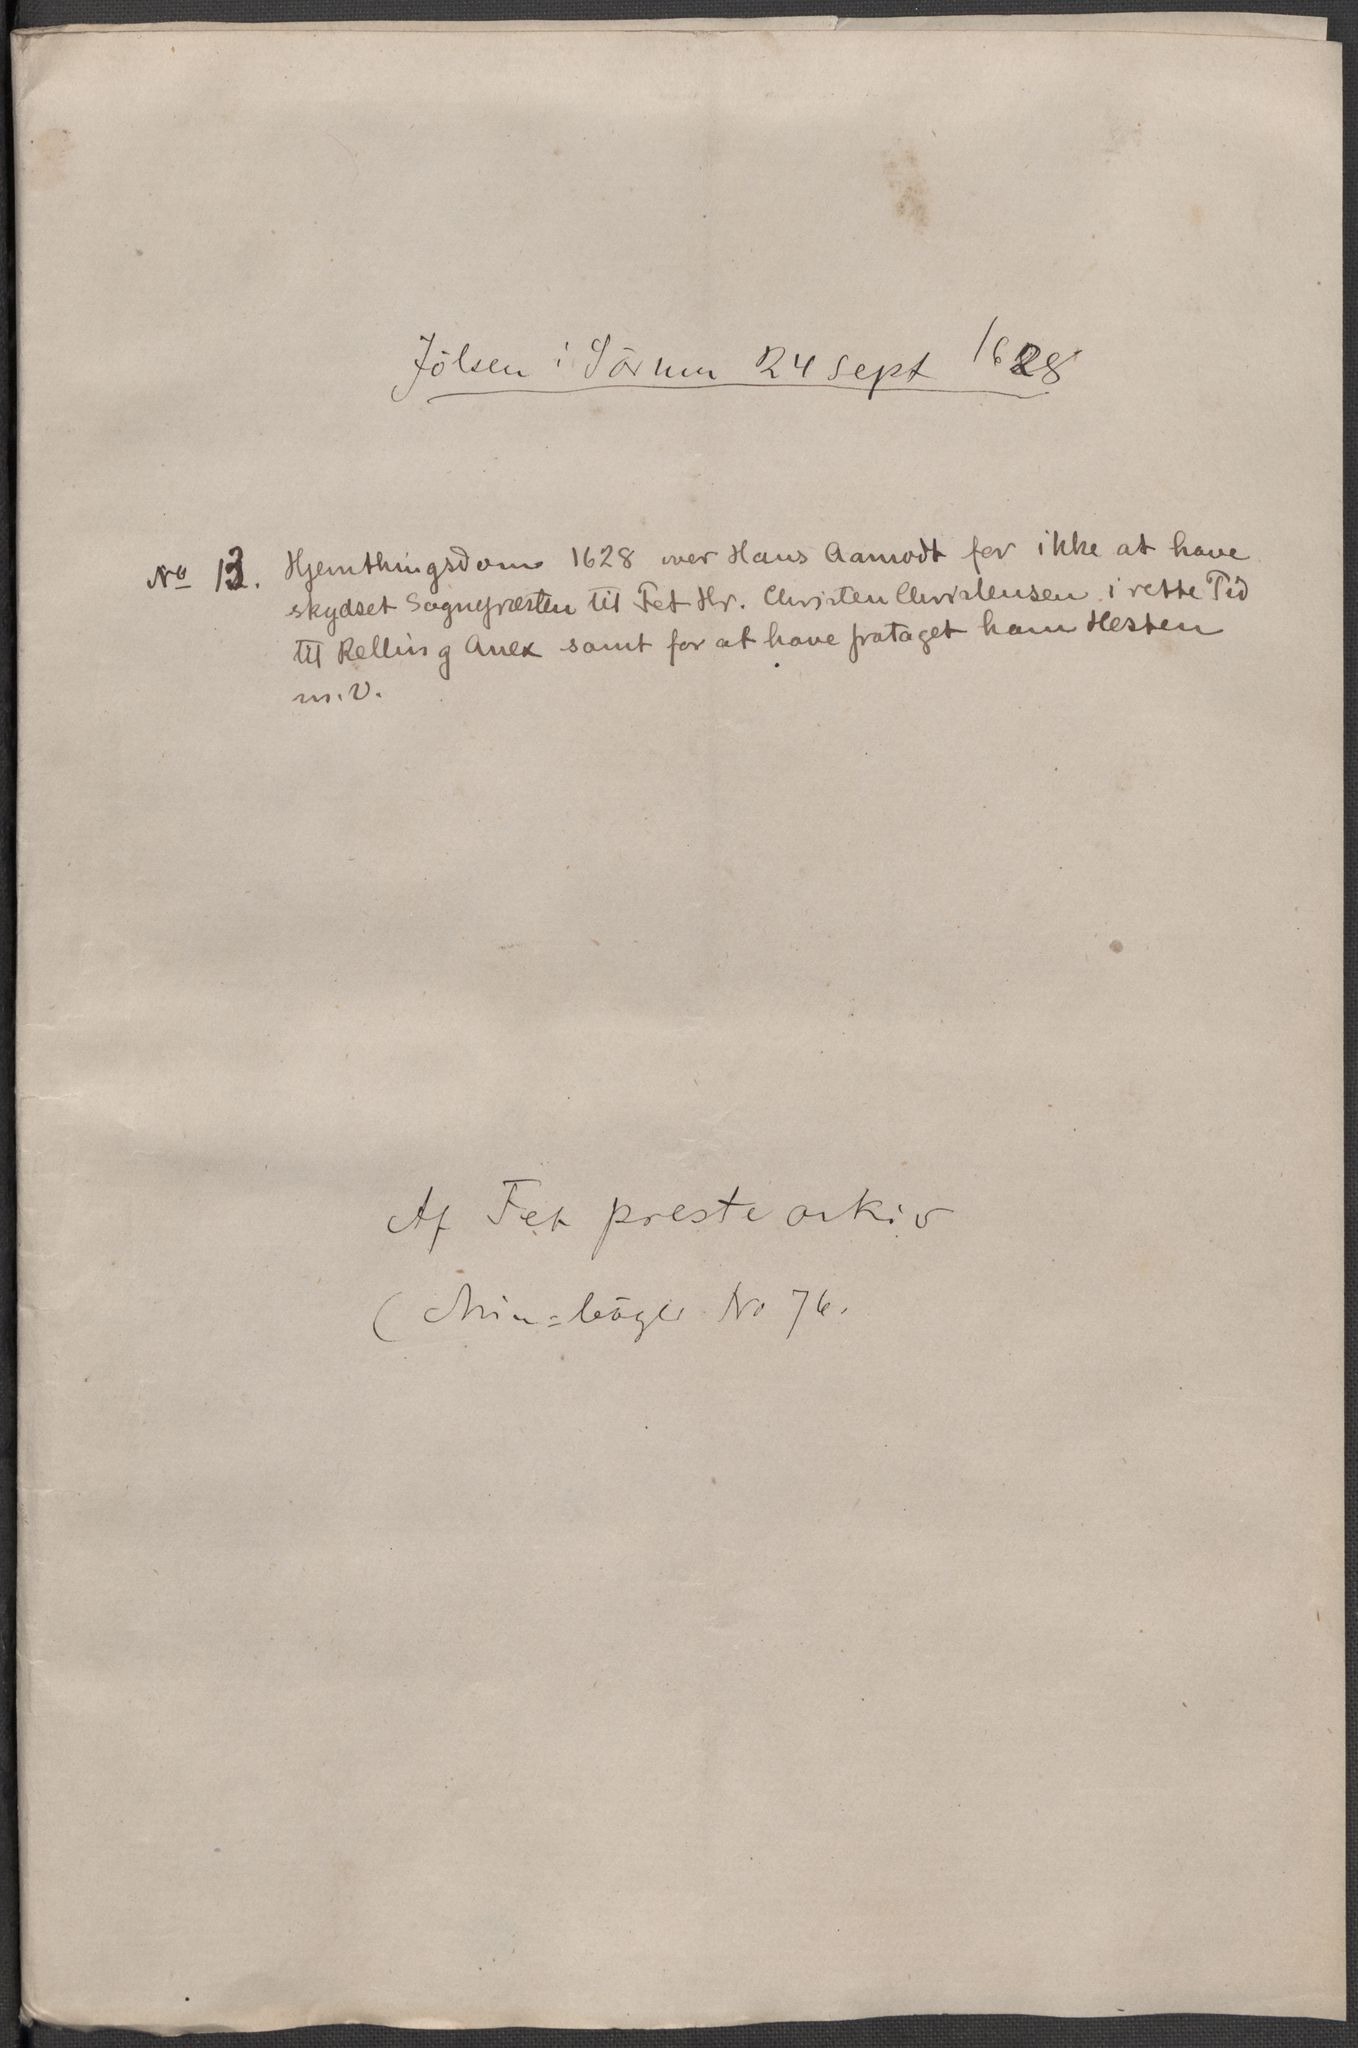 Jölsen i Sörum 24 Sept 1628
No 13. Hjemthingsdom 1628 over Hans Aamodt for ikke at have
skydset Sognepræsten til Fet Hr. Christen Christensen i rette Tid
til Relling Anex samt for at have frataget ham Hesten
m.v.
Af Fet prestearkiv
( Min=bøger No 76.